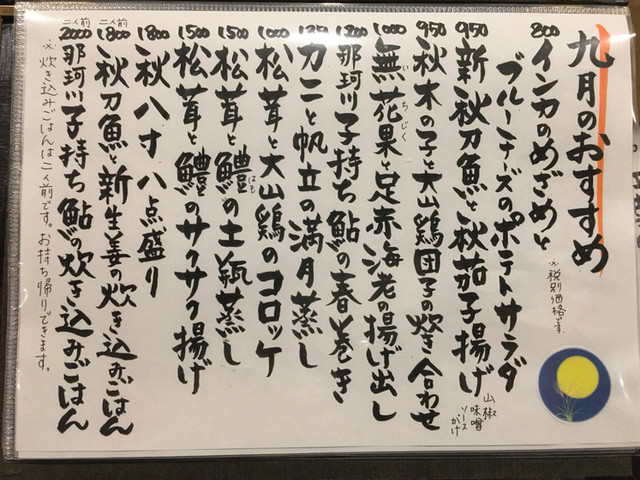 九月のおすすめ
※税別価格です。
800
インカのめざめと
ブルーチーズのポテトサラダ
950
新秋刀魚と秋茄子揚げ
山椒
味噌
ソース
がけ
950
秋木の子と大山鶏団子の炊き合わせ
1000
無花果と足赤海老の揚げ出し
いちじく
1200
那珂川子持ち鮎の春巻き
カニと帆立の満月蒸し
1000
松茸と大山鶏のコロッケ
1500
松茸と鱧の土瓶蒸し
はも
1500
松茸と鱧のサクサク揚げ
1800
秋八寸 八点盛り
二人前
1800
秋刀魚と新生姜の炊き込みごはん
二人前
2000
那珂川子持ち鮎の炊き込みごはん
※炊き込みごはんは二人前です。お持ち帰りできます。